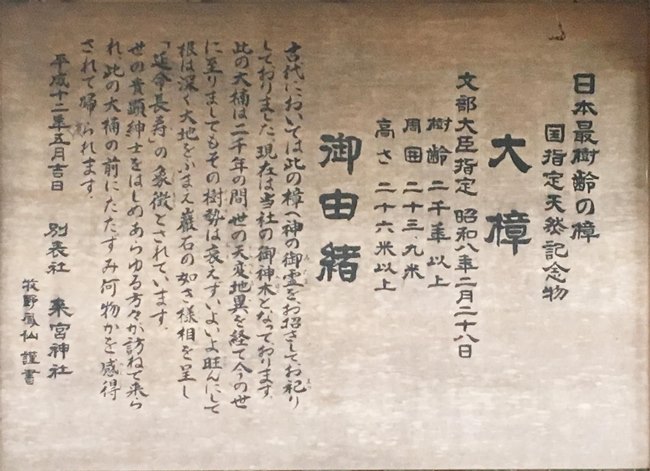 日本最樹齢の樟
国指定天然記念物
大樟
文部大臣指定 昭和八年二月二十八日
樹齢 二千年以上
周囲 二十三、九米
高さ 二十六米以上
御由緒
古代においては此の樟へ神の御霊をお招きしてお祀り
しておりました現在は当社の御神木となっております。
此の大楠は二千年の間世の天変地異を経て今の世
に至りましてもその樹勢は衰えず、いよいよ旺んにして
根は深く大地をふまえ巌石の如き様相を呈し
「延命長寿」の象徴とされています。
世の貴顕紳士をはじめあらゆる方々が訪ねて来ら
れ、此の大楠の前にたたずみ何物かを感得
されて帰られます。
平成十二年五月吉日 別表社 来宮神社
牧野鳳仙 謹書